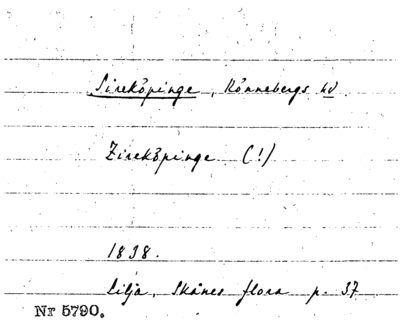 Sireköpinge, Rönnebergs hd
Zireköpinge (!)
1838.
Lilja, Skånes flora p. 37
Nr 5790.